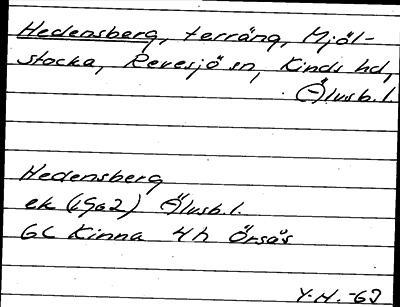 Hedensberg, terräng, Mjöl-
stocka, Revesjö sn, Kinds hd,
Älvsb.l.
Hedensberg
ek (1962) Älvsb.l.
6C Kinna 4h Örsås
Y.H. -63